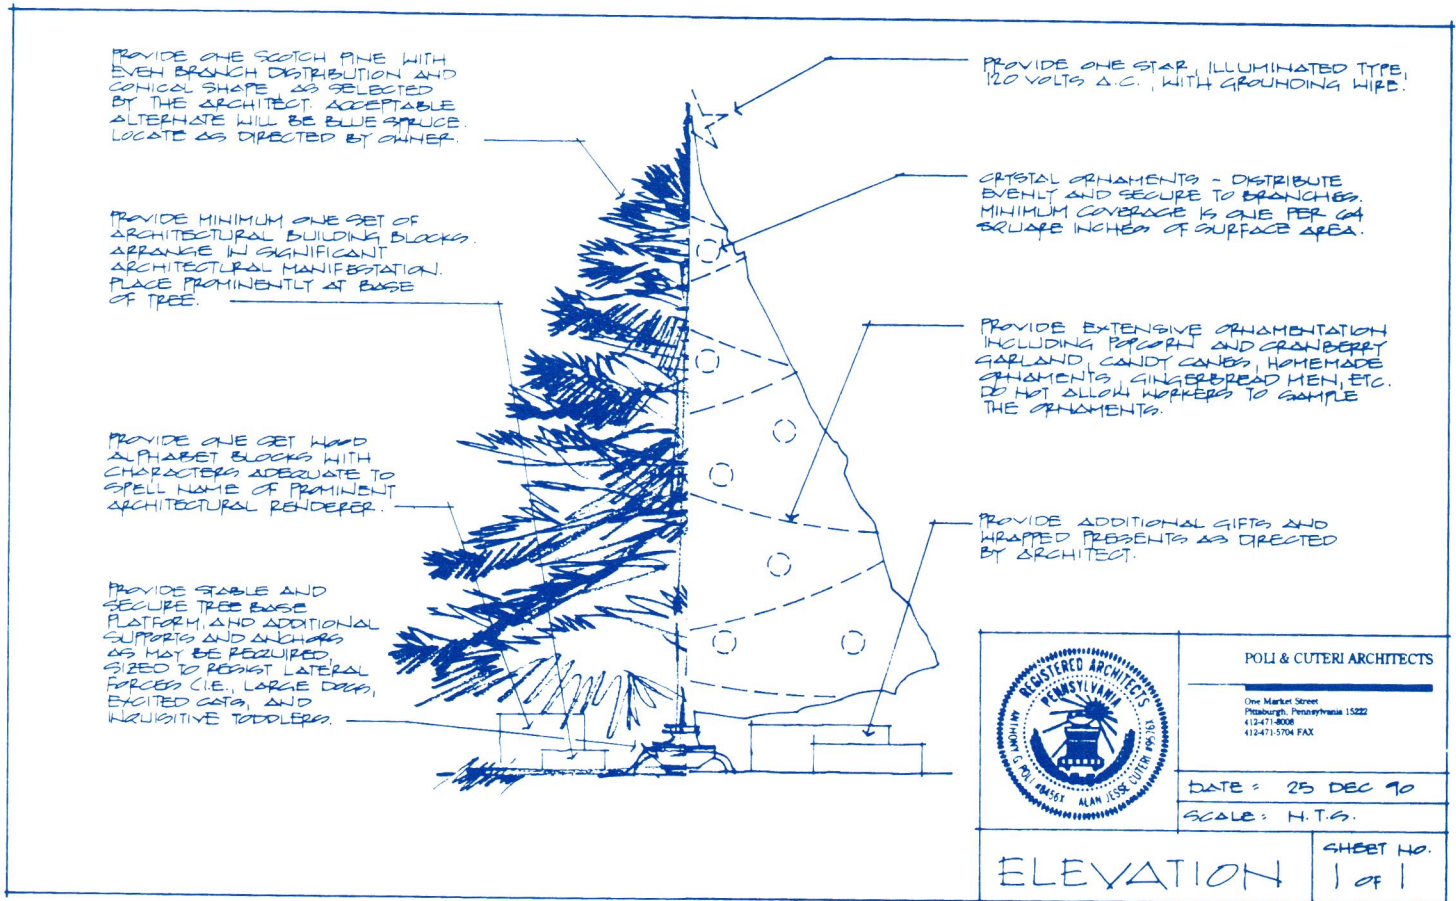 PROVIDE ONE SCOTCH PINE WITH
EVEN BRANCH DISTRIBUTION AND
CONICAL SHAPE, AS SELECTED
BY THE ARCHITECT. ACCEPTABLE
ALTERNATE WILL BE BLUE SPRUCE.
LOCATE AS DIRECTED BY OWNER.
PROVIDE MINIMUM ONE SET OF
ARCHITECTURAL BUILDING BLOCKS.
ARRANGE IN SIGNIFICANT
ARCHITECTURAL MANIFESTATION.
PLACE PROMINENTLY AT BASE
OF TREE.
PROVIDE ONE SET WOOD
ALPHABET BLOCKS WITH
CHARACTERS ADEQUATE TO
SPELL NAME OF PROMINENT
ARCHITECTURAL RENDERER.
PROVIDE STABLE AND
SECURE TREE BASE
PLATFORM, AND ADDITIONAL
SUPPORTS AND ANCHORS
AS MAY BE REQUIRED,
SIZED TO RESIST LATERAL
FORCES (I.E., LARGE DOGS,
EXCITED CATS, AND
INQUISITIVE TODDLERS.
PROVIDE ONE STAR, ILLUMINATED TYPE,
120 VOLTS A.C., WITH GROUNDING WIRE.
CRYSTAL ORNAMENTS - DISTRIBUTE
EVENLY AND SECURE TO BRANCHES.
MINIMUM COVERAGE IS ONE PER 64
SQUARE INCHES OF SURFACE AREA.
PROVIDE EXTENSIVE ORNAMENTATION
INCLUDING POPCORN AND CRANBERRY
GARLAND, CANDY CANES, HOMEMADE
ORNAMENTS, GINGERBREAD MEN, ETC.
DO NOT ALLOW WORKERS TO SAMPLE
THE ORNAMENTS.
PROVIDE ADDITIONAL GIFTS AND
WRAPPED PRESENTS AS DIRECTED
BY ARCHITECT.
REGISTERED ARCHITECTS
PENNSYLVANIA
ANTHONY G POLI #8456X
ALAN JESSE CUTERI #9576X
POLI & CUTERI ARCHITECTS
One Market Street
Pittsburgh, Pennsylvania 15222
412-471-8008
412-471-5704 FAX
DATE: 25 DEC 90
SCALE: N.T.S.
ELEVATION
SHEET NO.
1 OF 1